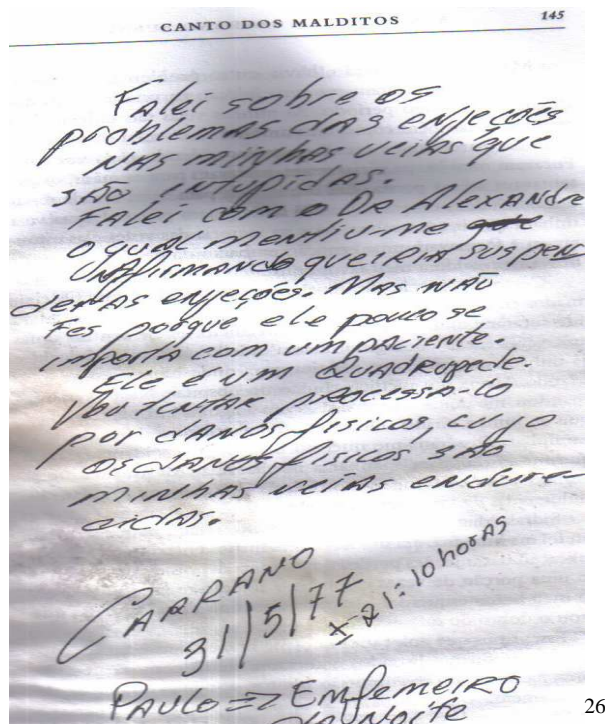 CANTO DOS MALDITOS 145
Falei sobre os
problemas das enjeções
nas minhas veias que
são intupidas.
Falei com o Dr Alexandre
o qual mentiu-me que
afirmando queiria suspen
der as enjeções. Mas não
fes porque ele pouco se
importa com um paciente.
Ele é um Quadrupede.
Vou tentar processa-lo
por danos fisicos, cujo
os danos fisicos são
minhas veias endure-
cidas.
CARRANO
31/5/77
± 21:10 horas
PAULO => Enfemeiro
da Noite
26